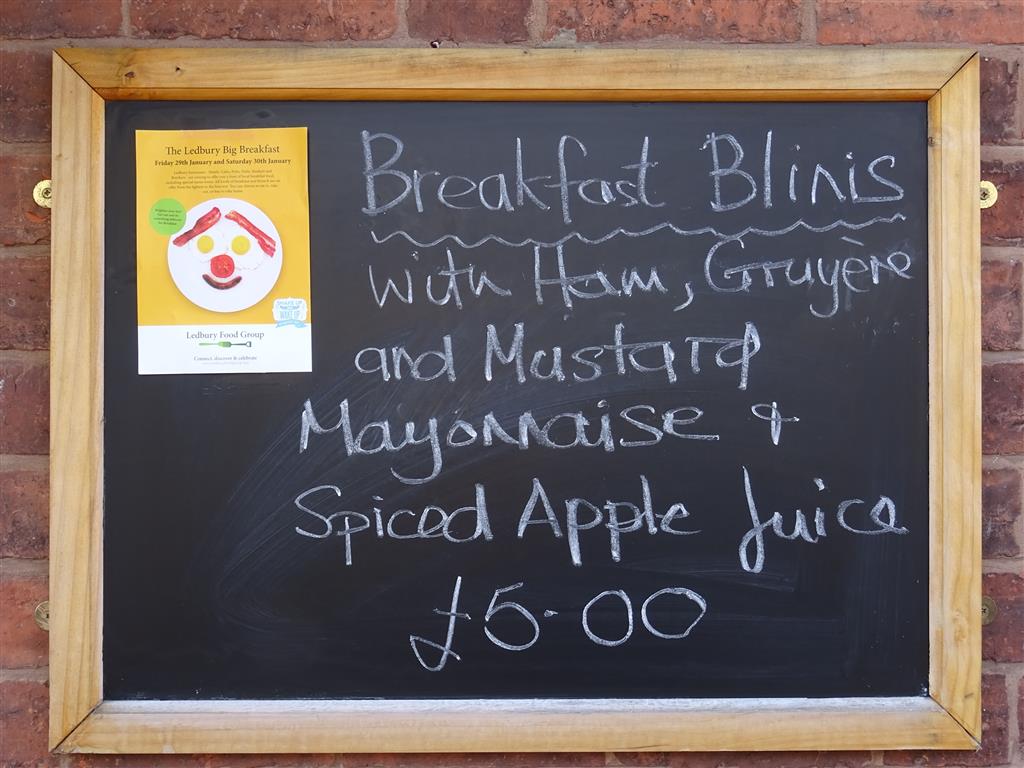 The Ledbury Big Breakfast
Friday 29th January and Saturday 30th January
SHAKE UP
WAKE UP
Ledbury Food Group
Connect, discover & celebrate
Breakfast Blinis
with Ham, Gruyère
and Mustard
Mayonnaise +
Spiced Apple Juice
£5.00